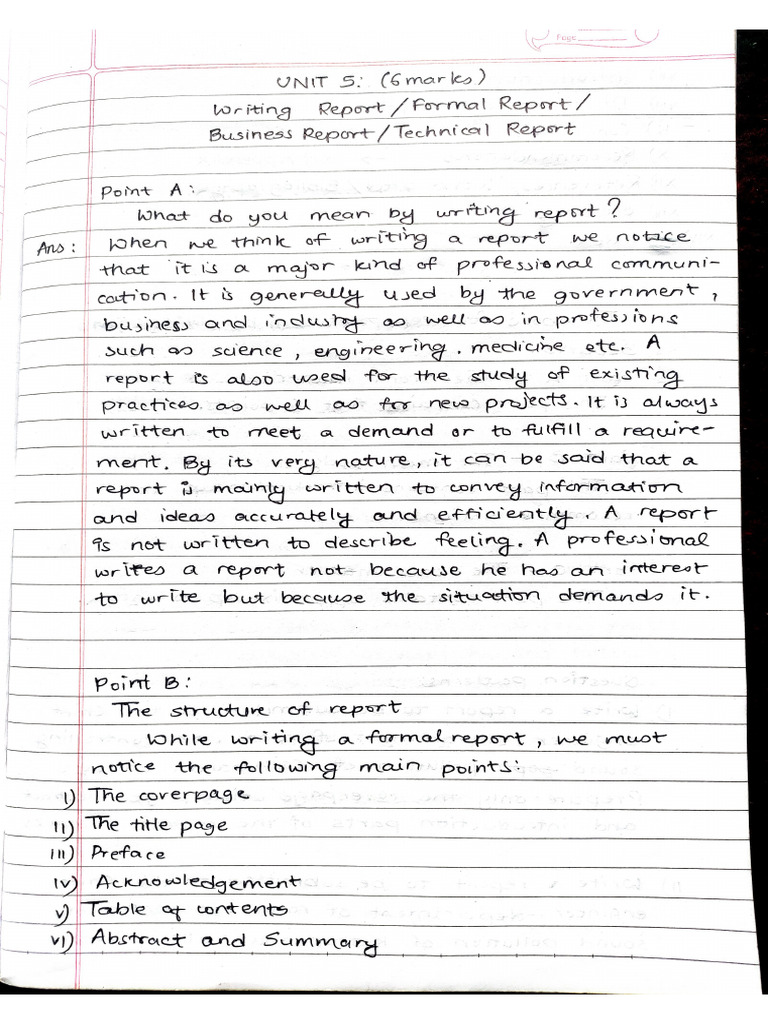 Page
UNIT 5: (6 marks)
Writing Report / Formal Report /
Business Report / Technical Report
Point A:
What do you mean by writing report?
Ans: When we think of writing a report we notice
that it is a major kind of professional communi-
cation. It is generally used by the government,
business and industry as well as in professions
such as science, engineering, medicine etc. A
report is also used for the study of existing
practices as well as for new projects. It is always
written to meet a demand or to fulfill a require-
ment. By its very nature, it can be said that a
report is mainly written to convey information
and ideas accurately and efficiently. A report
is not written to describe feeling. A professional
writes a report not because he has an interest
to write but because the situation demands it.
Point B:
The structure of report
While writing a formal report, we must
notice the following main points:
i) The coverpage
ii) The title page
iii) Preface
iv) Acknowledgement
v) Table of contents
vi) Abstract and Summary